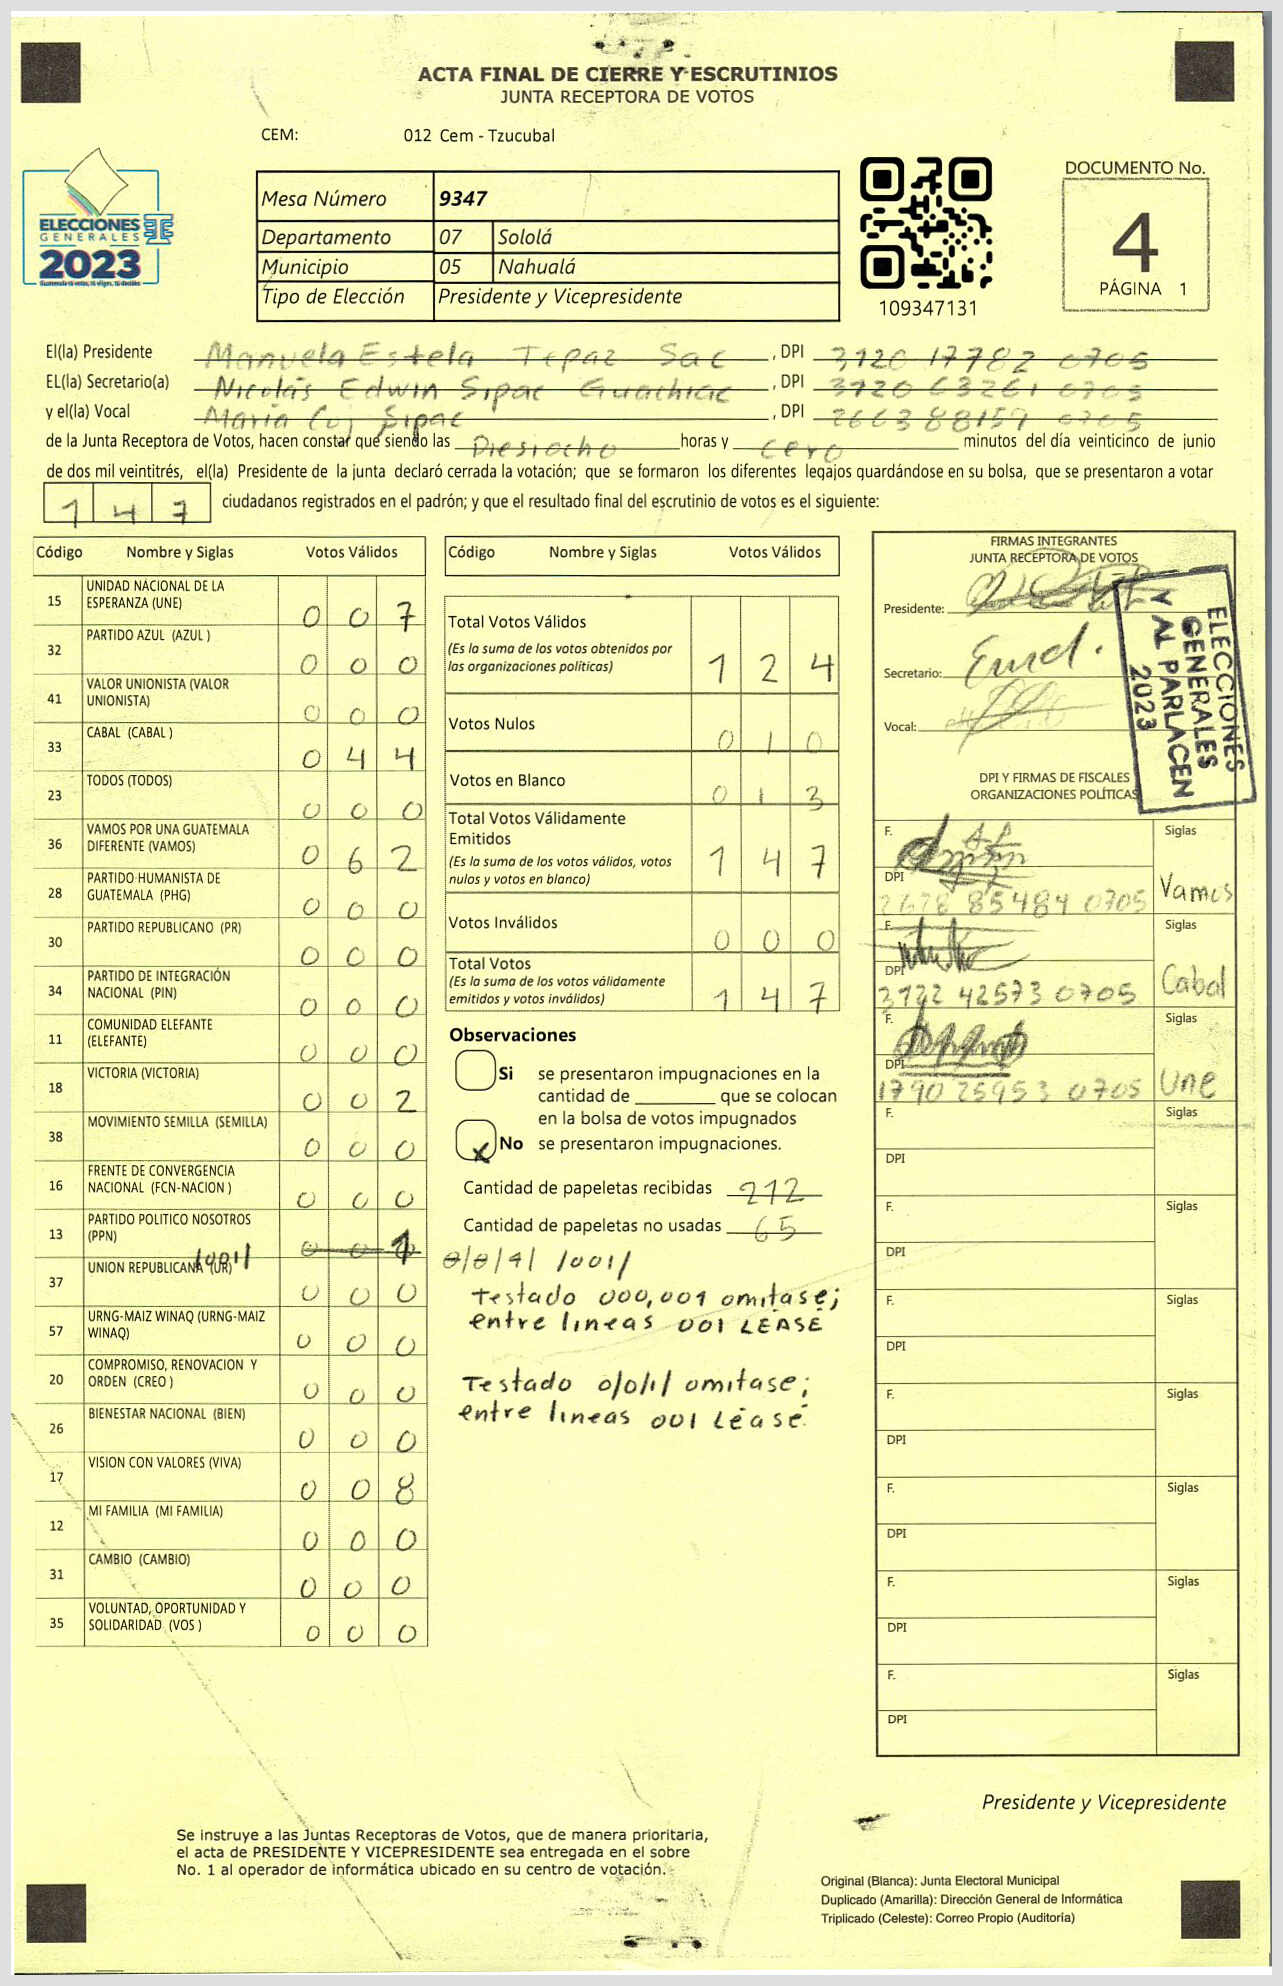 ACTA FINAL DE CIERRE Y ESCRUTINIOS
JUNTA RECEPTORA DE VOTOS
CEM: 012 Cem - Tzucubal
ELECCIONES
GENERALES
2023
Mesa Número 9347
Departamento 07 Sololá
Municipio 05 Nahualá
Tipo de Elección Presidente y Vicepresidente
109347131
DOCUMENTO No.
4
PÁGINA 1
El(la) Presidente Manuela Estela Tepaz Sac , DPI 3120 17782 0705
EL(la) Secretario(a) Nicolás Edwin Sipac Guachiac , DPI 3120 63261 0705
y el(la) Vocal María Coj Sipac , DPI 2663 88159 0705
de la Junta Receptora de Votos, hacen constar que siendo las Diesiocho horas y cero minutos del día veinticinco de junio
de dos mil veintitrés, el(la) Presidente de la junta declaró cerrada la votación; que se formaron los diferentes legajos guardándose en su bolsa, que se presentaron a votar
1 4 7 ciudadanos registrados en el padrón; y que el resultado final del escrutinio de votos es el siguiente:
Código Nombre y Siglas Votos Válidos
15 UNIDAD NACIONAL DE LA
ESPERANZA (UNE) 0 0 7
32 PARTIDO AZUL (AZUL ) 0 0 0
41 VALOR UNIONISTA (VALOR
UNIONISTA) 0 0 0
33 CABAL (CABAL ) 0 4 4
23 TODOS (TODOS) 0 0 0
36 VAMOS POR UNA GUATEMALA
DIFERENTE (VAMOS) 0 6 2
28 PARTIDO HUMANISTA DE
GUATEMALA (PHG) 0 0 0
30 PARTIDO REPUBLICANO (PR) 0 0 0
34 PARTIDO DE INTEGRACIÓN
NACIONAL (PIN) 0 0 0
11 COMUNIDAD ELEFANTE
(ELEFANTE) 0 0 0
18 VICTORIA (VICTORIA) 0 0 2
38 MOVIMIENTO SEMILLA (SEMILLA) 0 0 0
16 FRENTE DE CONVERGENCIA
NACIONAL (FCN-NACION ) 0 0 0
13 PARTIDO POLITICO NOSOTROS
(PPN) /001/ 0 0 1
37 UNION REPUBLICANA (UR) 0 0 0
57 URNG-MAIZ WINAQ (URNG-MAIZ
WINAQ) 0 0 0
20 COMPROMISO, RENOVACION Y
ORDEN (CREO ) 0 0 0
26 BIENESTAR NACIONAL (BIEN) 0 0 0
17 VISION CON VALORES (VIVA) 0 0 8
12 MI FAMILIA (MI FAMILIA) 0 0 0
31 CAMBIO (CAMBIO) 0 0 0
35 VOLUNTAD, OPORTUNIDAD Y
SOLIDARIDAD (VOS ) 0 0 0
Código Nombre y Siglas Votos Válidos
Total Votos Válidos
(Es la suma de los votos obtenidos por
las organizaciones políticas) 1 2 4
Votos Nulos 0 1 0
Votos en Blanco 0 1 3
Total Votos Válidamente
Emitidos
(Es la suma de los votos válidos, votos
nulos y votos en blanco) 1 4 7
Votos Inválidos 0 0 0
Total Votos
(Es la suma de los votos válidamente
emitidos y votos inválidos) 1 4 7
Observaciones
Si se presentaron impugnaciones en la
cantidad de ________ que se colocan
en la bolsa de votos impugnados
x No se presentaron impugnaciones.
Cantidad de papeletas recibidas 212
Cantidad de papeletas no usadas 65
/001/
Testado 000,001 omitase;
entre lineas 001 LEASE
Testado 0/0/1/ omitase;
entre lineas 001 Léase
FIRMAS INTEGRANTES
JUNTA RECEPTORA DE VOTOS
Presidente:
Secretario:
Vocal:
ELECCIONES
GENERALES
Y AL PARLACEN
2023
DPI Y FIRMAS DE FISCALES
ORGANIZACIONES POLÍTICAS
F. Siglas
DPI Vamos
2678 85484 0705
F. Siglas
DPI Cabal
3122 42573 0705
F. Siglas
DPI Une
1790 25953 0705
F. Siglas
DPI
F. Siglas
DPI
F. Siglas
DPI
F. Siglas
DPI
F. Siglas
DPI
F. Siglas
DPI
F. Siglas
DPI
Presidente y Vicepresidente
Se instruye a las Juntas Receptoras de Votos, que de manera prioritaria,
el acta de PRESIDENTE Y VICEPRESIDENTE sea entregada en el sobre
No. 1 al operador de informática ubicado en su centro de votación.
Original (Blanca): Junta Electoral Municipal
Duplicado (Amarilla): Dirección General de Informática
Triplicado (Celeste): Correo Propio (Auditoría)